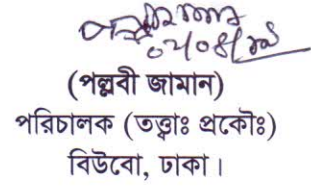 ০২/০৪/১৯
(পল্লবী জামান)
পরিচালক (তত্ত্বাঃ প্রকৌঃ)
বিউবো, ঢাকা।